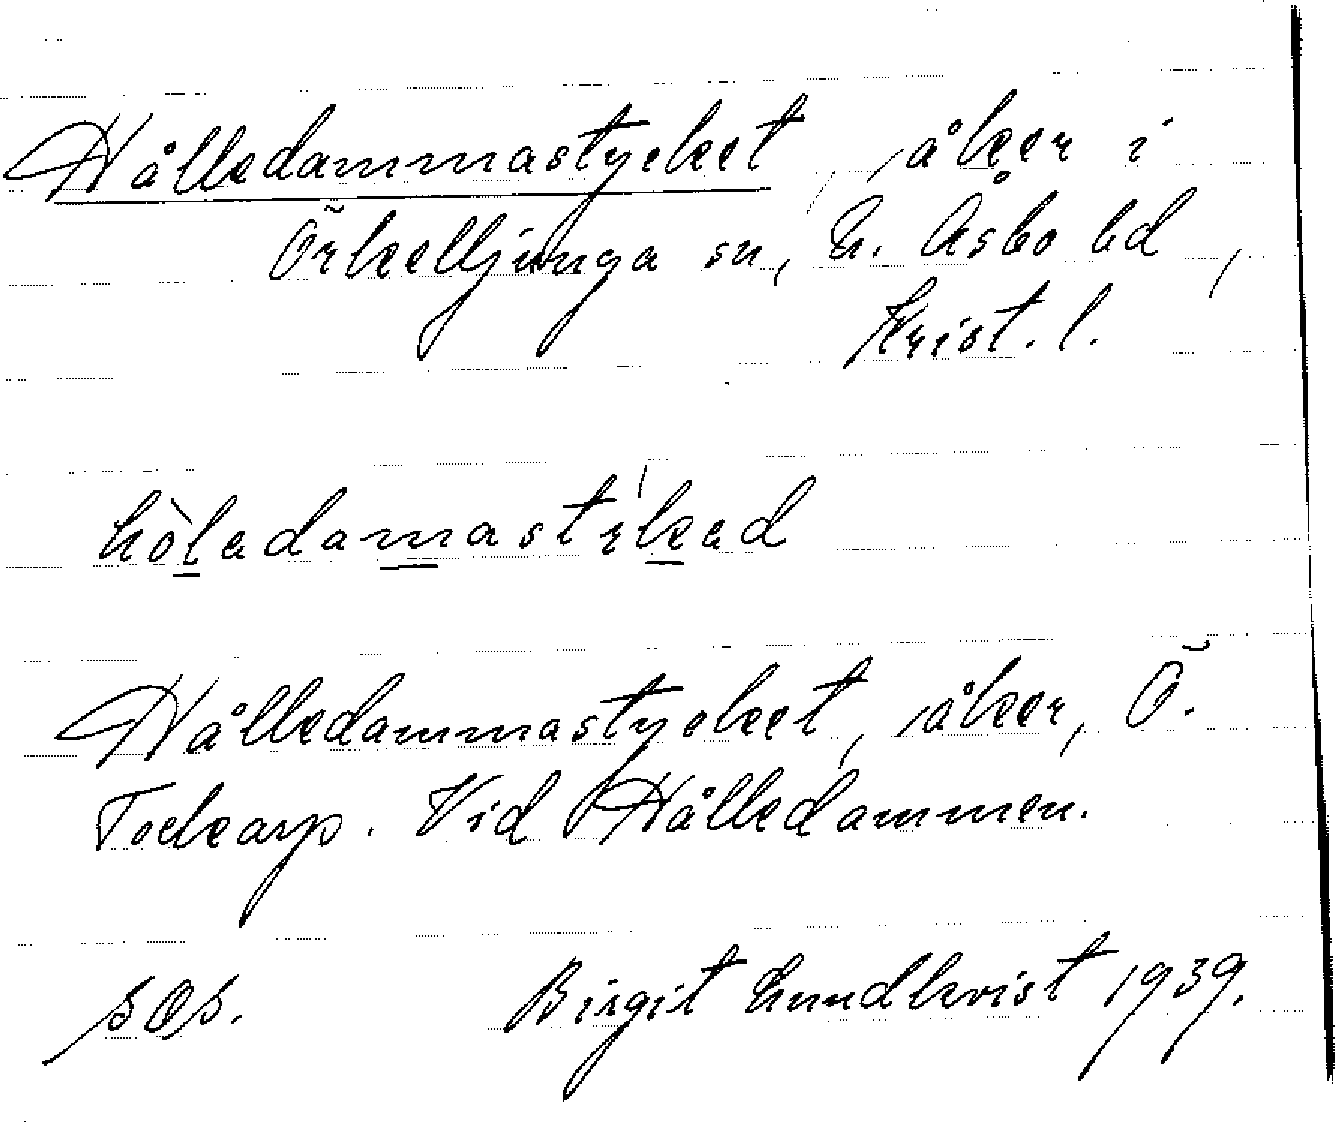 Hålledammastycket, åker i
Örkelljunga sn, N. Åsbo hd,
Krist. l.
hòledamastýked
Hålledammastycket, åker, Ö.
Tockarp. Vid Hålledammen.
Birgit Lundkvist 1939.